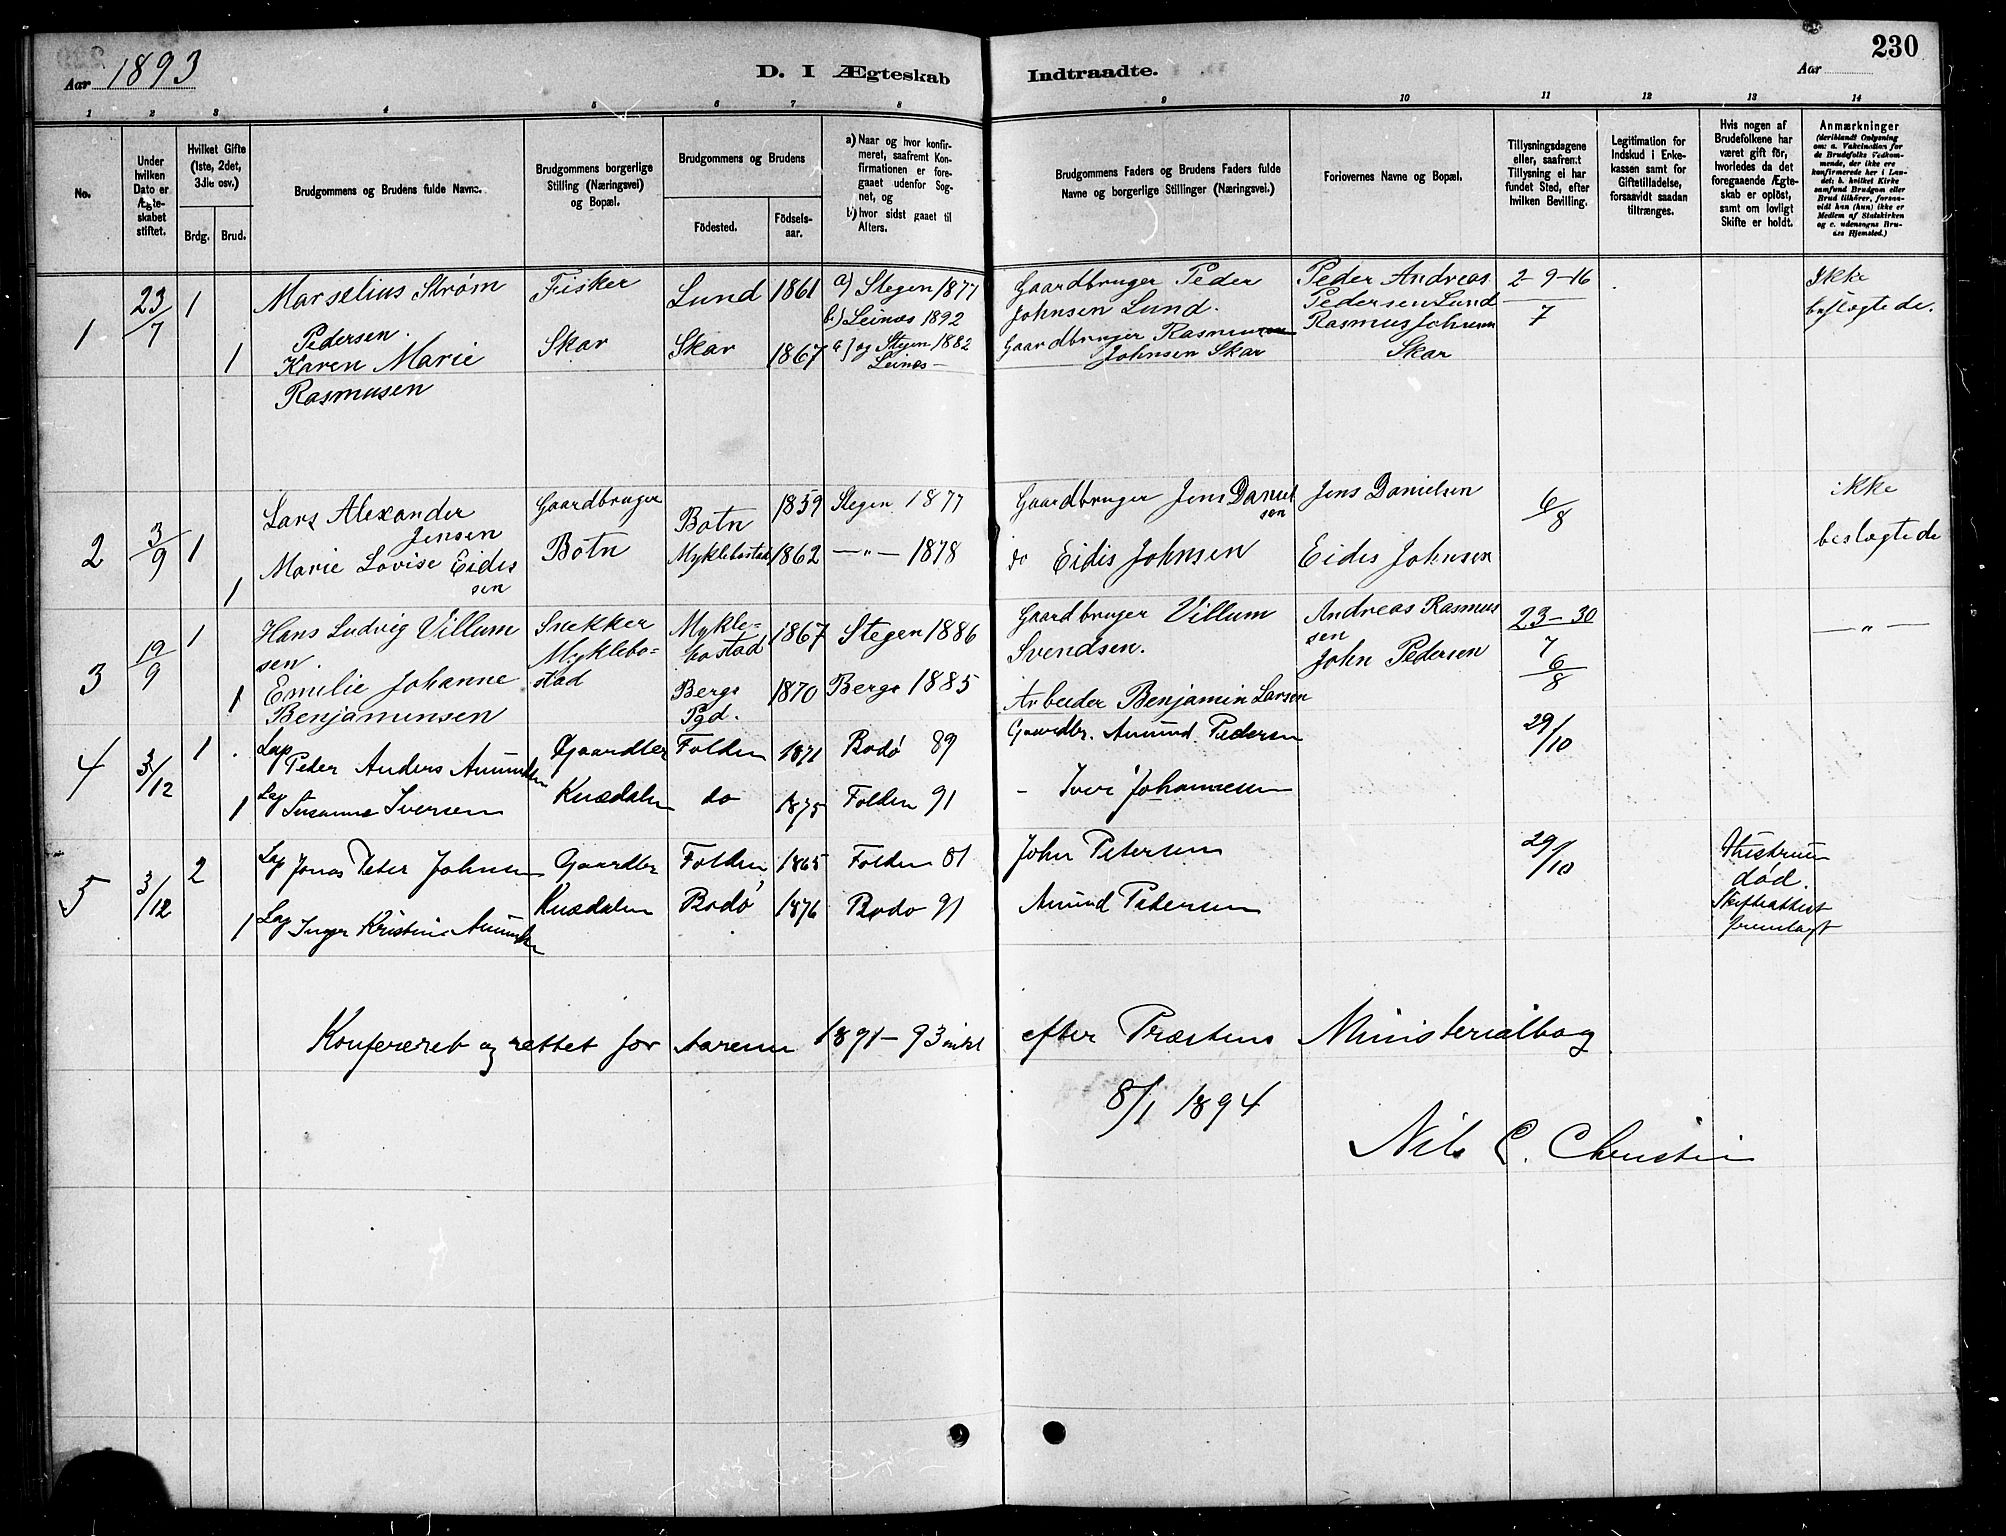 Aar 1893
D. I Ægteskab Indtraadte.
Aar 230
1 2 3 4 5 6 7 8 9 10 11 12 13 14
No.
Under hvilken Dato er Ægteskabet stiftet.
Hvilket Gifte (1ste, 2det, 3die osv.)
Brdg. Brud.
Brudgommens og Brudens fulde Navne.
Brudgommens borgerlige Stilling (Næringsvei) og Bopæl.
Brudgommens og Brudens
Födested. Födsels-aar.
a) Naar og hvor konfirmeret, saafremt Konfirmationen er foregaaet udenfor Sognet, og
b) hvor sidst gaaet til Alters.
Brudgommens Faders og Brudens Faders fulde Navne og borgerlige Stillinger (Næringsvei.)
Forlovernes Navne og Bopæl.
Tillysningsdagene eller, saafremt Tillysning ei har fundet Sted, efter hvilken Bevilling.
Legitimation for Indskud i Enkekassen samt for Giftetilladelse, forsaavidt saadan tiltrænges.
Hvis nogen af Brudefolkene har været gift för, hvorledes da det foregaaende Ægteskab er oplöst, samt om lovligt Skifte er holdt.
Anmærkninger (deriblandt Oplysning om: a. Vakcination for de Brudefolks Vedkommende, der ikke ere konfirmerede her i Landet; b. hvilket Kirkesamfund Brudgom eller Brud tilhörer, forsaavidt han (hun) ikke er Medlem af Statskirken og c. udensogns Brudes Hjemsted.)
1 23/7 1 Marselius Strøm Pedersen. Fisker Lund 1861 a) Stegen 1877 b) Leinæs 1892 Gaardbruger Peder Johnsen Lund. Peder Andreas Pedersen Lund 2-9-16/7 Ikke beslægtede.
1 Karen Marie Rasmusen Skar Skar 1867 a) og Stegen 1882 Leinæs — Gaardbruger Rasmus Johnsen Skar Rasmus Johnsen Skar
2 3/9 1 Lars Alexander Jensen Gaardbruger Botn 1859 Stegen 1877 Gaardbruger Jens Danielsen Jens Danielsen 6/8 ikke beslægtede
1 Marie Lovise Eidissen Botn Myklebostad 1862 —"— 1878 do Eidis Johnsen Eidis Johnsen
3 19/9 1 Hans Ludvig Villumsen. Snekker Myklebostad Myklebostad 1867 Stegen 1886 Gaardbruger Villum Svendsen. Andreas Rasmussen 23-30/7 —"—
1 Emilie Johanne Benjaminsen Bergs Pgd. 1870 Bergs 1885 Arbeider Benjamin Larsen John Pedersen 6/8
4 3/12 1 Lap Peder Anders Amundsen Gaardbr Folden 1871 Bodö 89 Gaardbr. Amund Pedersen 29/10
1 Lap Susanna Iversen Knædalen do 1875 Folden 91 - Iver Johannesen
5 3/12 2 Lap Jonas Peter Johnsen Gaardbr Folden 1865 Folden 81 John Petersen 29/10 Hustruen död.
1 Lap Inger Kristine Amundsen Knædalen Bodö 1876 Bodo 91 Amund Pedersen Skifteattest fremlagt
Konfereret og rettet for Aarene 1891-93 inkl efter Præstens Ministerialbog
8/1 1894
Nils C.